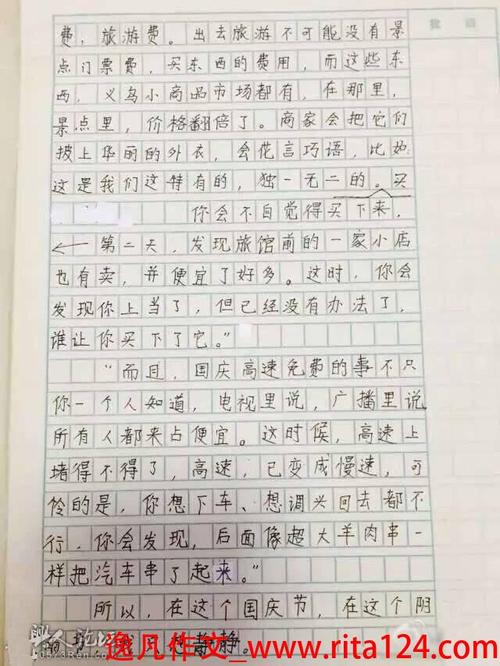 费，旅游费。出去旅游不可能没有景
点门票费，买东西的费用，而这些东
西，义乌小商品市场都有，在那里，
景点里，价格翻倍了。商家会把它们
披上华丽的外衣，会花言巧语，比如
这是我们这特有的，独一无二的。买
你会不自觉得买下来，
← 第二天，发现旅馆前的一家小店
也有卖，并便宜了好多。这时，你会
发现你上当了，但已经没有办法了，
谁让你买下了它。”
“而且，国庆高速免费的事不只
你一个人知道，电视里说，广播里说
所有人都来占便宜。这时候，高速上
堵得不得了，高速，已变成慢速，可
怜的是，你想下车、想调头回去都不
行，你会发现，后面像超大羊肉串一
样把汽车串了起来。”
所以，在这个国庆节，在这个阴
想静静。
逸凡作文_www.rita124.com